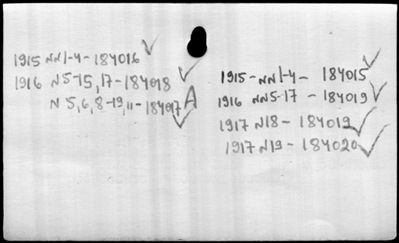 1915 NN 1-4 - 184016
1916 N 5-15, 17 - 184018
N 5, 6, 8-19, 11 - 184017 A
1915 - NN 1-4 - 184015
1916 NN 5-17 - 184019
1917 N18 - 184019
1917 N19 - 184020